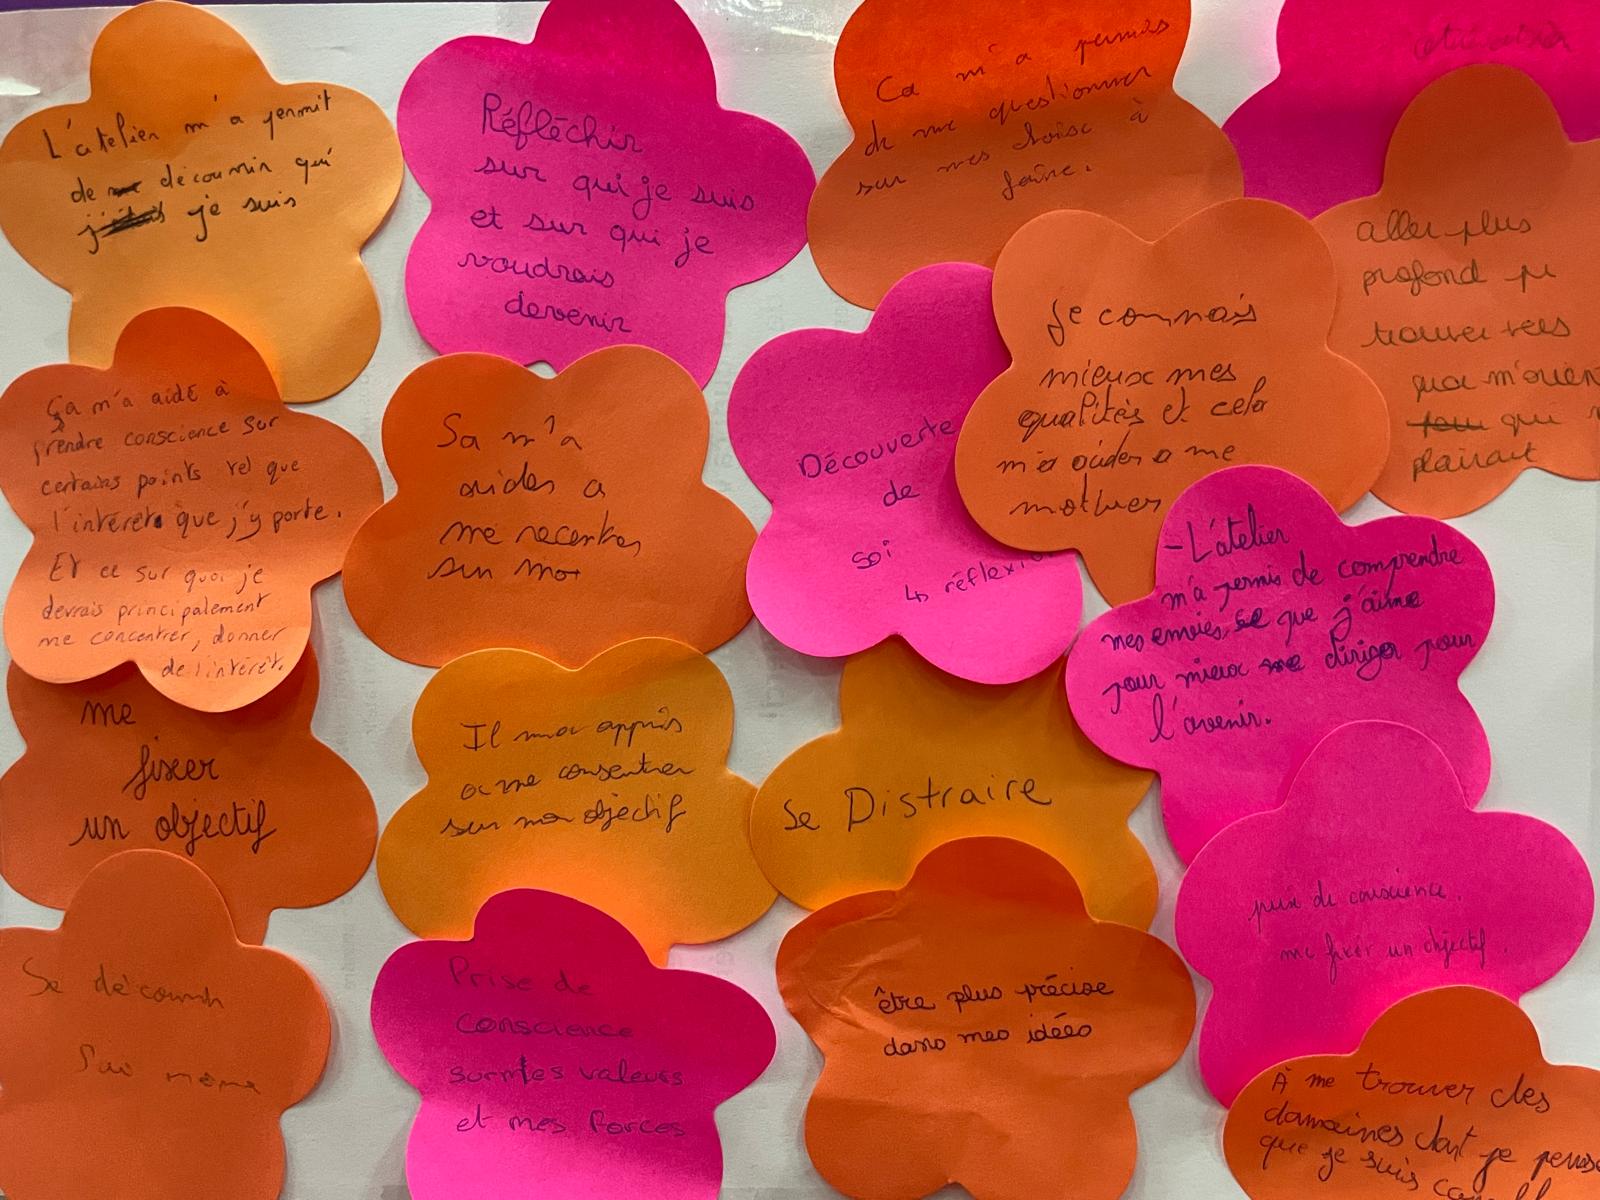 L'atelier m'a permit
de découvrir qui
je suis
Réfléchir
sur qui je suis
et sur qui je
voudrais
devenir
Ca m'a permas
de me questionner
sur mes choise à
faire.
aller plus
profond pr
trouver vers
quoi m'orien
qui
plairait
Je connais
mieux mes
qualités et cela
m'a aider a me
motiver
Ça m'a aidé à
prendre conscience sur
certains points tel que
l'intérêt que j'y porte.
Et ce sur quoi je
devrais principalement
me concentrer, donner
de l'intérêt.
Sa m'a
aider a
me recentrer
sur moi
Découverte
de
soi
↳ réflexio
- L'atelier
m'a permis de comprendre
mes envies, ce que j'aime
pour mieux me diriger pour
l'avenir.
me
fixer
un objectif
Il m'a appris
a me consentrer
sur mon objectif
Se Distraire
prise de conscience.
me fixer un objectif.
Se découvrir
Soi même
Prise de
conscience
sur mes valeurs
et mes forces
être plus précise
dans mes idées
À me trouver des
domaines dont je pense
que je suis